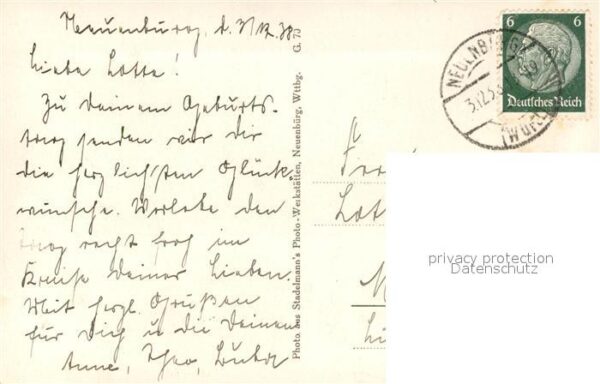 Neuenbürg, d. 3.12.38
Liebe Lotte!
Zu Deinem Geburts-
tag senden wir Dir
die herzlichsten Glück-
wünsche. Verlebe den
Tag recht froh im
Kreise Deiner Lieben.
Mit herzl. Grüßen
für Dich u. die Deinen
Anne, Theo,
Photo aus Stadelmann's Photo-Werkstätten, Neuenbürg, Wttbg. G. 73
6 6
Deutsches Reich
NEUENBÜRG
3.12.38
Lot
privacy protection
Datenschutz